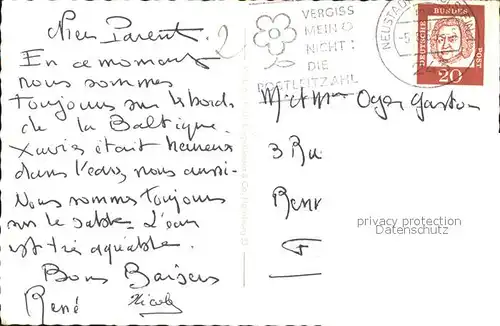 Mes Parents.
En ce moment
nous sommes
toujours sur le bord
de la Baltique.
Xavier était heureux
dans l'eau, nous aussi.
Nous sommes toujours
sur le sable. L'eau
est très agréable.
Bons Baisers
René Nicole
2
VERGISS
MEIN
NICHT:
DIE
POSTLEITZAHL
NEUSTADT
DEUTSCHE BUNDESPOST
20
M et Mme Oger Gaston
3 Ru
Renn
F
privacy protection
Datenschutz